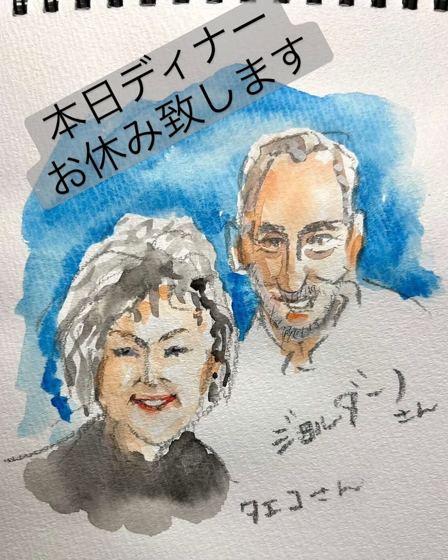 本日ディナー
お休み致します
ジョルダーノ
さん
クエコさん